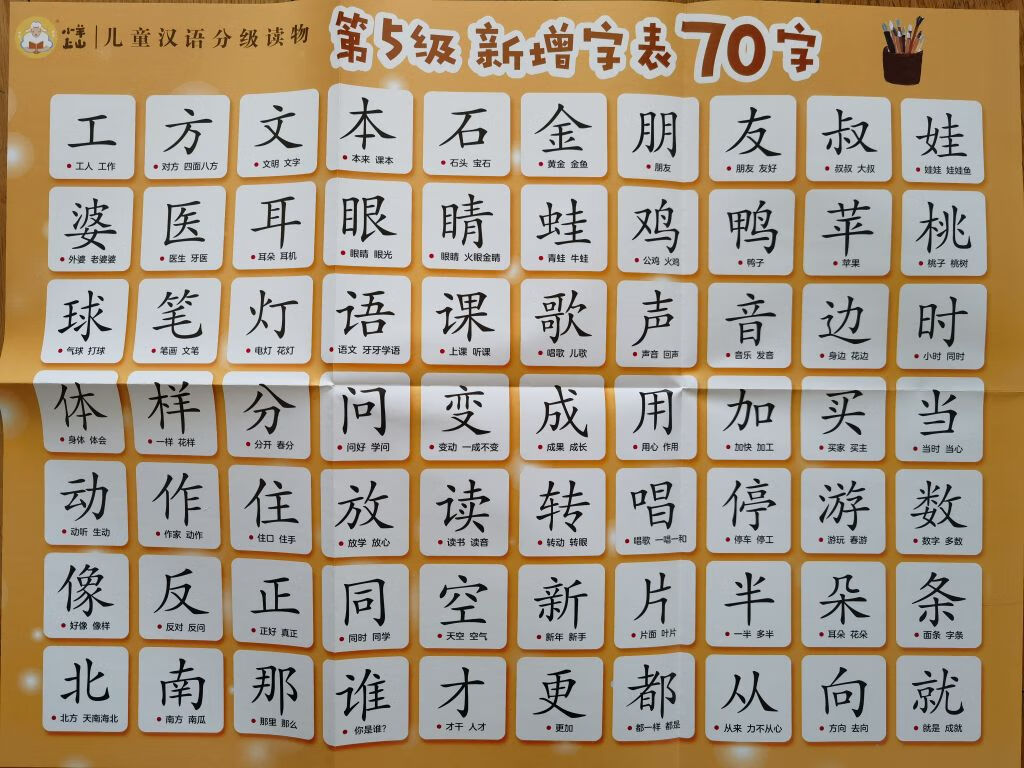 小羊上山
儿童汉语分级读物
第5级 新增字表 70字
工 方 文 本 石 金 朋 友 叔 娃
工人 工作 对方 四面八方 文明 文字 本来 课本 石头 宝石 黄金 金鱼 朋友 朋友 友好 叔叔 大叔 娃娃 娃娃鱼
婆 医 耳 眼 睛 蛙 鸡 鸭 苹 桃
外婆 老婆婆 医生 牙医 耳朵 耳机 眼睛 眼光 眼睛 火眼金睛 青蛙 牛蛙 公鸡 火鸡 鸭子 苹果 桃子 桃树
球 笔 灯 语 课 歌 声 音 边 时
气球 打球 笔画 文笔 电灯 花灯 语文 牙牙学语 上课 听课 唱歌 儿歌 声音 回声 音乐 发音 身边 花边 小时 同时
体 样 分 问 变 成 用 加 买 当
身体 体会 一样 花样 分开 春分 问好 学问 变动 一成不变 成果 成长 用心 作用 加快 加工 买家 买主 当时 当心
动 作 住 放 读 转 唱 停 游 数
动听 生动 作家 动作 住口 住手 放学 放心 读书 读音 转动 转眼 唱歌 一唱一和 停车 停工 游玩 春游 数字 多数
像 反 正 同 空 新 片 半 朵 条
好像 像样 反对 反问 正好 真正 同时 同学 天空 空气 新年 新手 片面 叶片 一半 多半 耳朵 花朵 面条 字条
北 南 那 谁 才 更 都 从 向 就
北方 天南海北 南方 南瓜 那里 那么 你是谁? 才干 人才 更加 都一样 都是 从来 力不从心 方向 去向 就是 成就